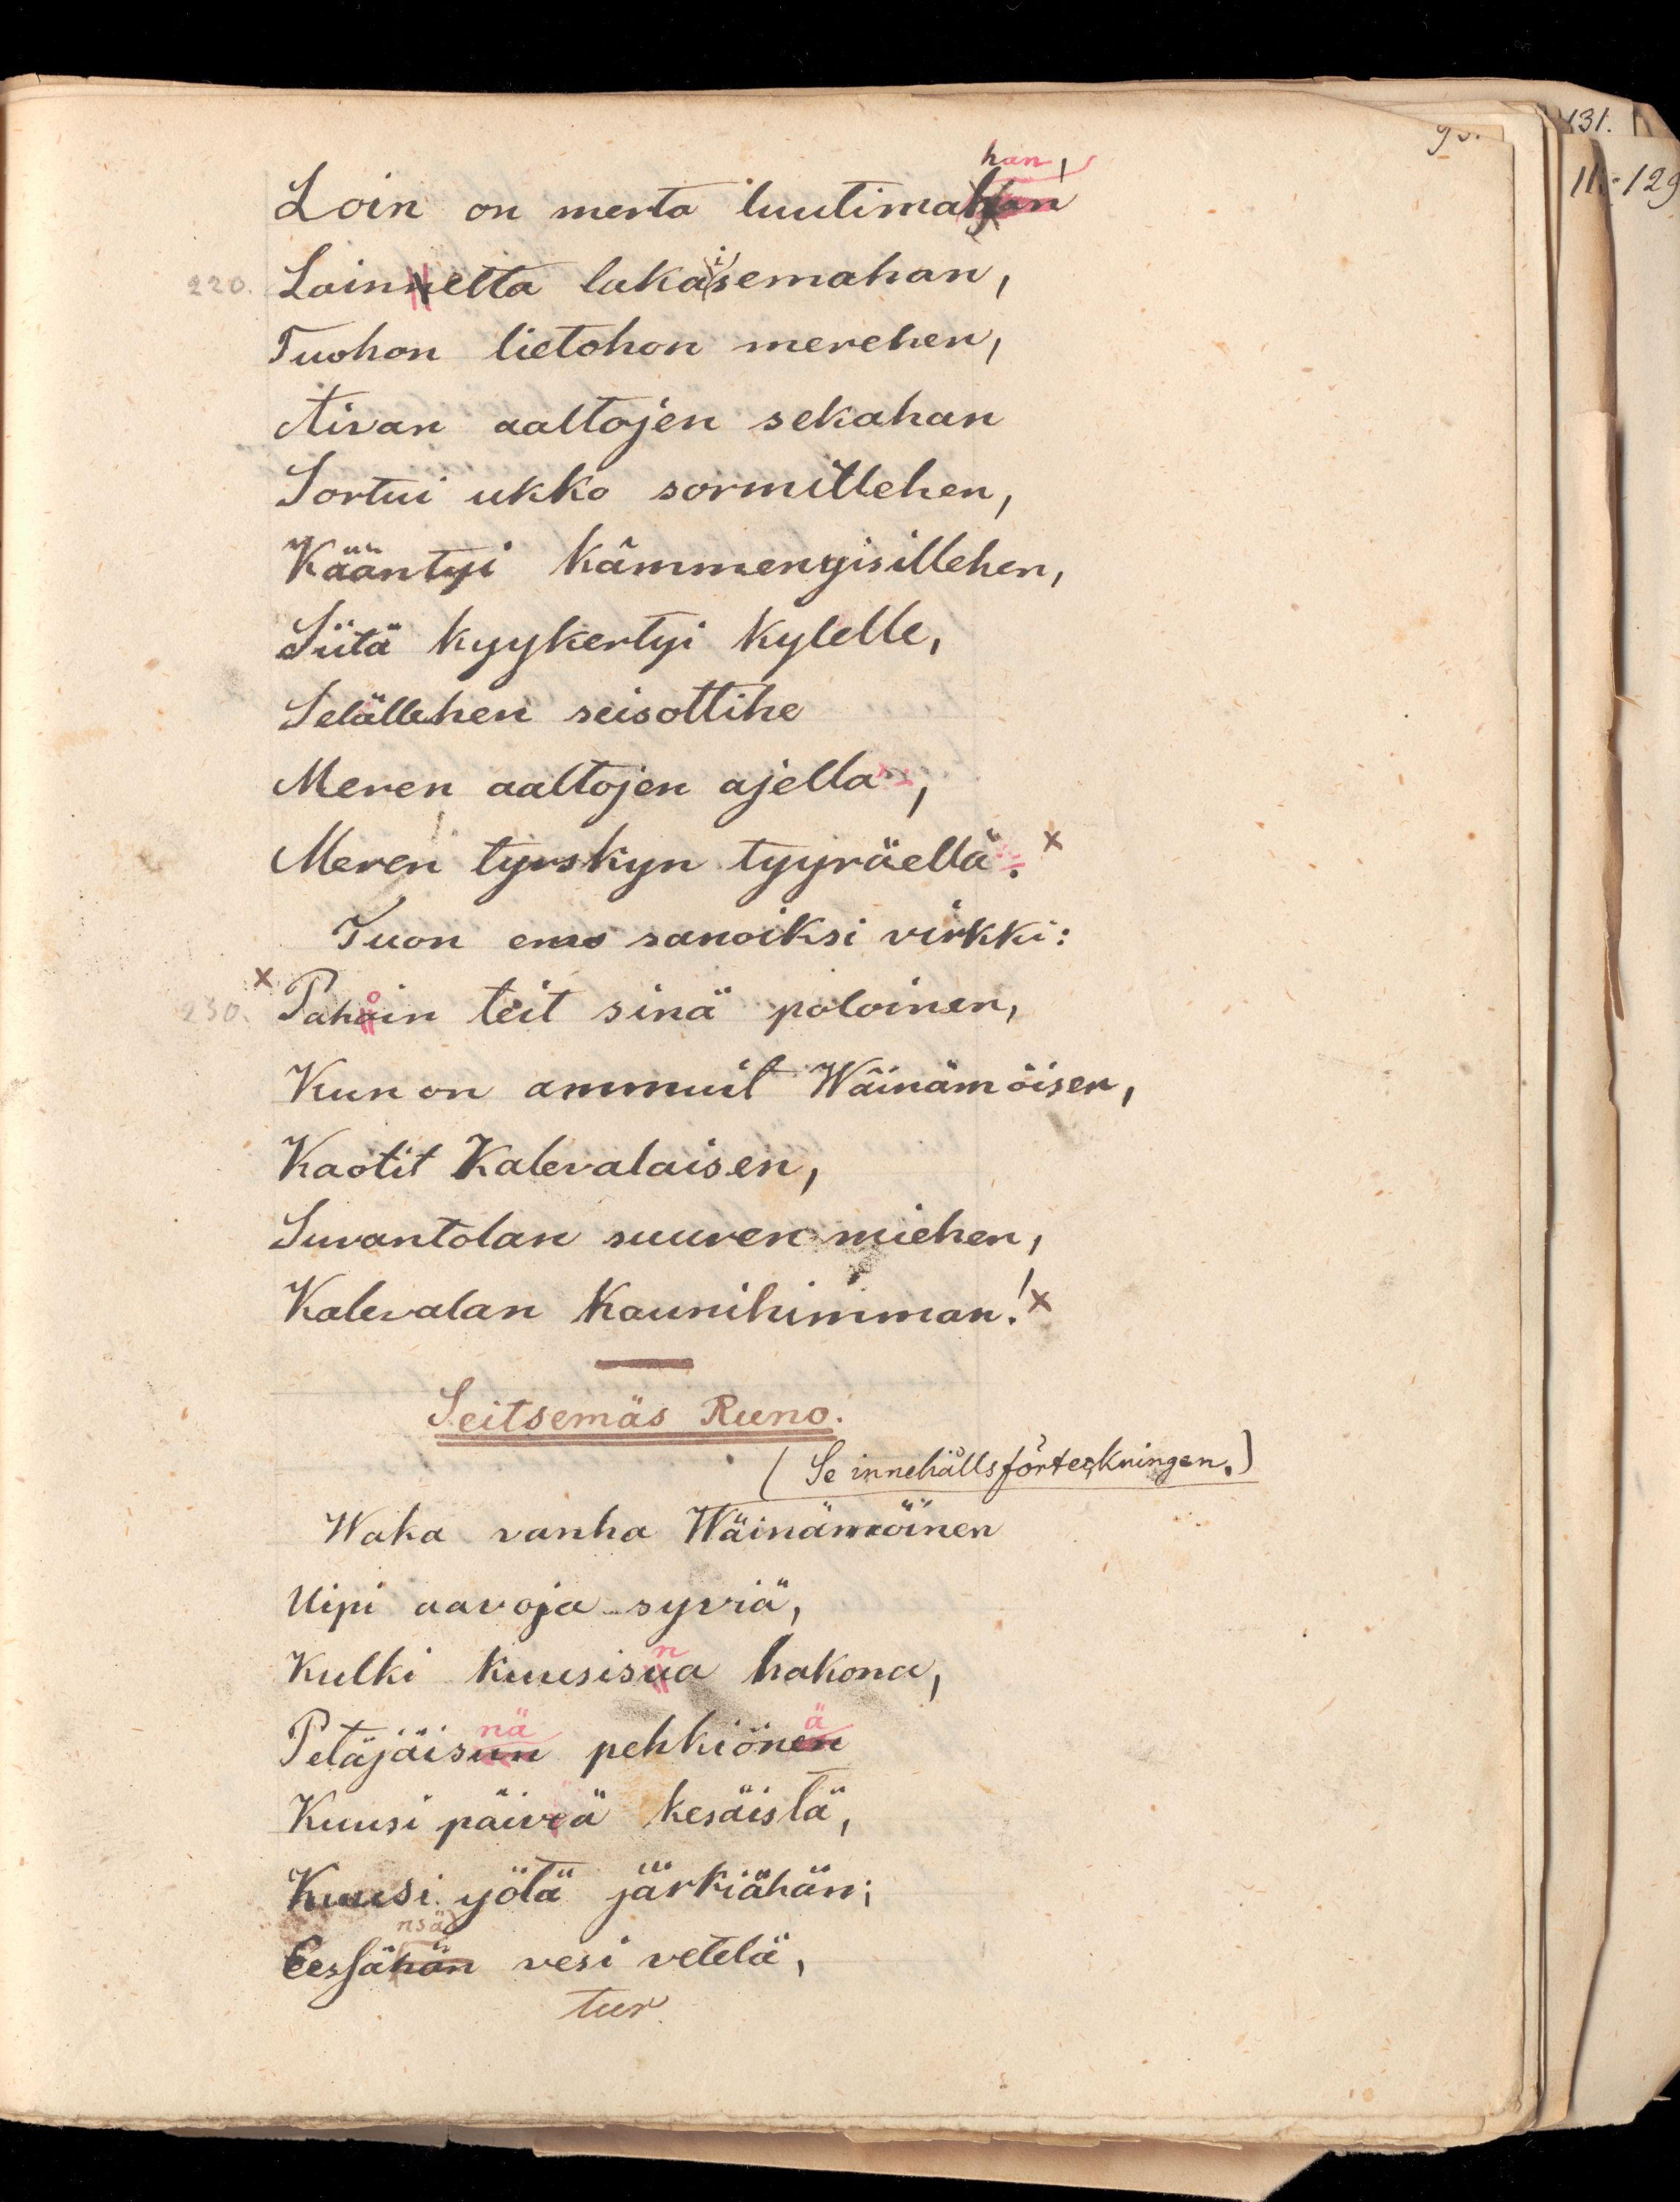 131.
11:129
93.
han,
Loin on merta luutimahan
220. Lainnetta lakaisemahan,
Tuohon lietohon merehen,
Aivan aaltojen sekahan
Sortui ukko sormillehen,
Kääntyi kämmengisillehen,
Siitä kyykertyi kylelle,
Selällehen seisottihe
Meren aaltojen ajella,
Meren tyrskyn tyyräellä. x
Tuon emo sanoiksi virkki:
x
230. Pahoin teit sinä poloinen,
Kun on ammuit Wäinämöisen,
Kaotit Kalevalaisen,
Suvantolan suuren miehen,
Kalevalan kaunihimman! x
Seitsemäs Runo.
(Se innehållsförteckningen.)
Waka vanha Wäinämöinen
Uipi aavoja syviä,
n
Kulki kuusisua hakona,
nä ä
Petäjäisun pehkiönen
Kuusi päiveä kesäistä,
Kuusi yötä järkiähän;
nsä
Eessähän vesi vetelä,
tur